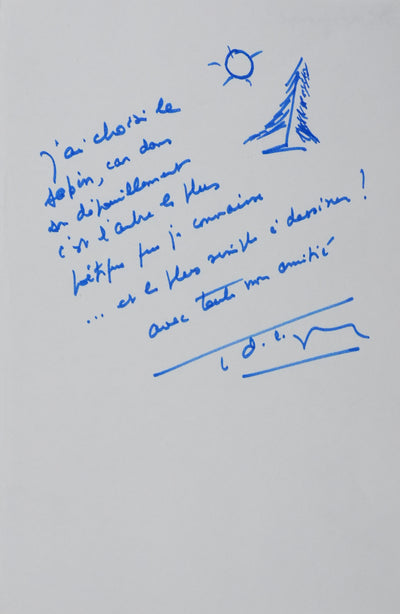 j'ai choisi le
sapin, car dans
son dépouillement
c'est l'arbre le plus
poétique que je connaisse
... et le plus simple à dessiner !
avec toute mon amitié